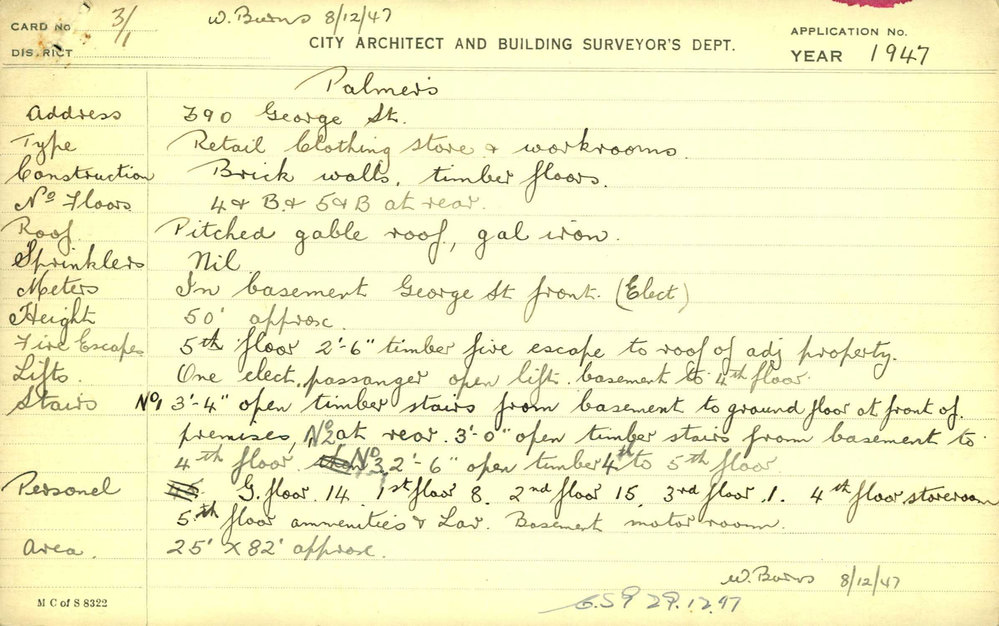 CARD No 3/1 W. Burns 8/12/47 APPLICATION No.
DISTRICT CITY ARCHITECT AND BUILDING SURVEYOR'S DEPT. YEAR 1947
Palmers
Address 390 George St.
Type Retail Clothing store & workrooms.
Construction Brick walls, timber floors.
No Floors 4 & B & 5 & B at rear.
Roof Pitched gable roof, gal iron.
Sprinklers Nil
Meters In basement George St front. (Elect)
Height 50' approx.
Fire Escapes 5th floor 2'-6" timber fire escape to roof of adj property.
Lifts. One elect. passanger open lift. basement to 4th floor.
Stairs No1 3'-4" open timber stairs from basement to ground floor at front of
premises, No2 at rear. 3'-0" open timber stairs from basement to
4th floor No 3, 2'-6" open timber 4th to 5th floor
Personel G. floor. 14. 1st floor 8. 2nd floor 15. 3rd floor. 1. 4th floor storeroom
5th floor ammenities & Lav. Basement motor room.
Area. 25' X 82' approx.
W. Burns 8/12/47
M C of S 8322
29.12.47